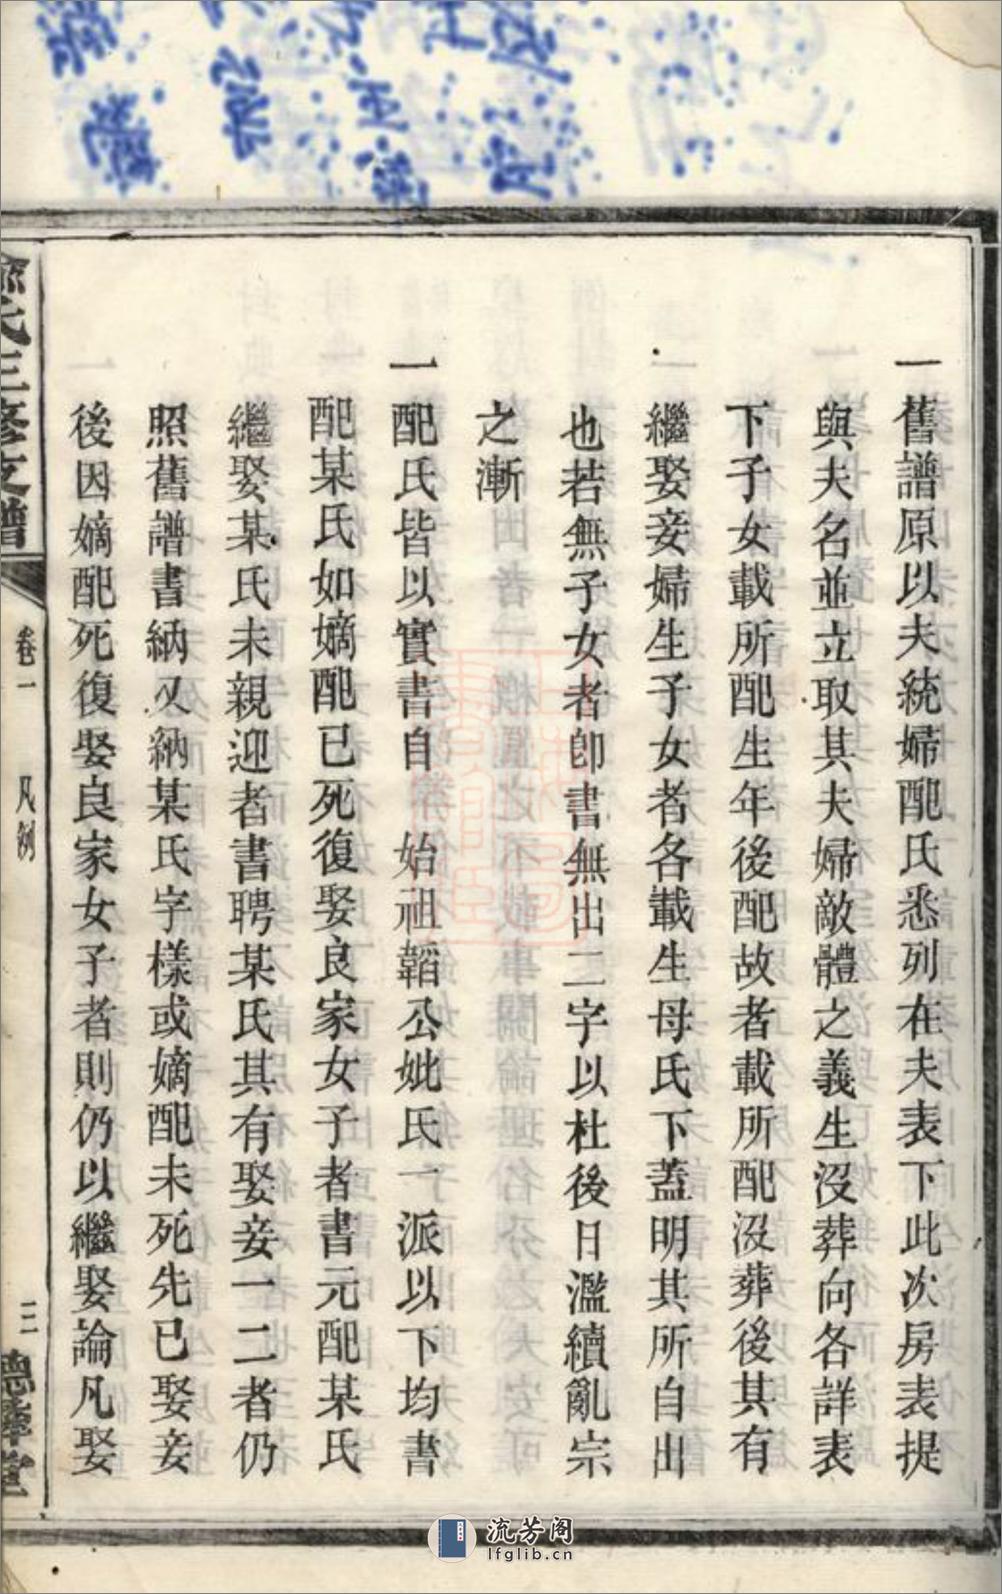 一舊譜原以夫統婦配氏悉列在夫表下此次房表提
與夫名並立取其夫婦敵體之義生沒葬向各詳表
下子女載所配生年後配故者載所配沒葬後其有
繼娶妾婦生子女者各載生母氏下蓋明其所自出
也若無子女者卽書無出二字以杜後日濫續亂宗
之漸
一配氏皆以實書自 始祖韜公妣氏一派以下均書
配某氏如嫡配已死復娶良家女子者書元配某氏
繼娶某氏未親迎者書聘某氏其有娶妾一二者仍
照舊譜書納又納某氏字樣或嫡配未死先已娶妾
後因嫡配死復娶良家女子者則仍以繼娶論凡娶
氏三修支譜
卷一
凡例
三
流芳阁
lfglib.cn